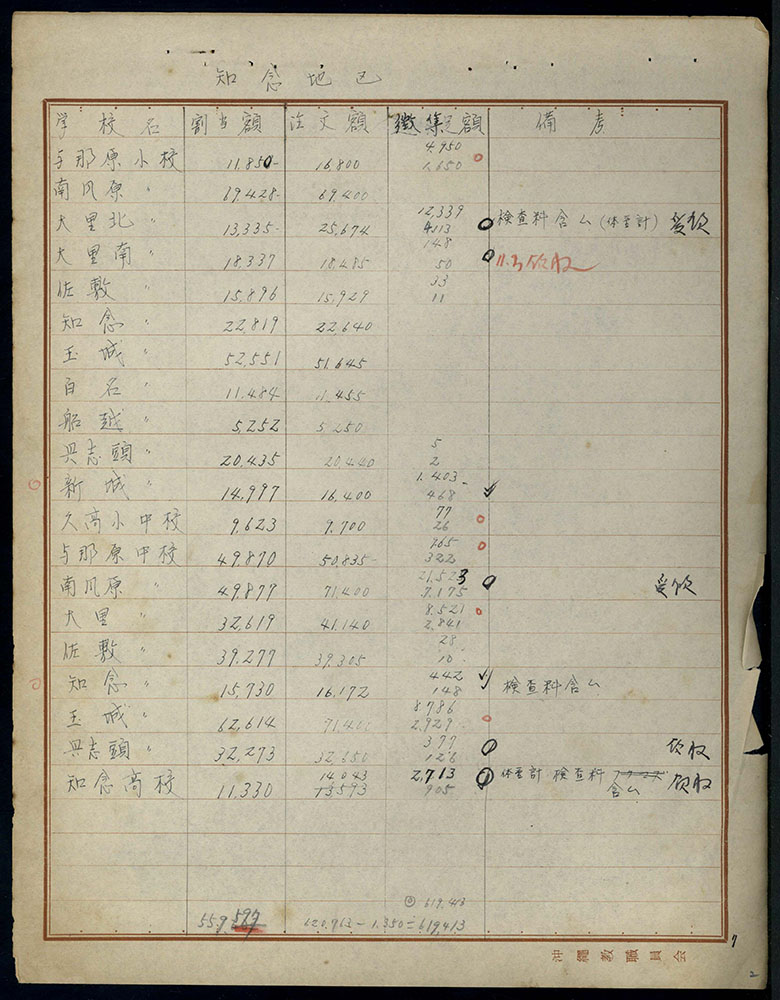 知念地区
学校名 割当額 注文額 徴集額 備考
与那原小校 11,850- 16,800 4,950 1,650
南风原 〃 69,428- 69,400
大里北 〃 13,335- 25,674 12,339 4,113 検査料含ム (体重計)
大里南 〃 18,337 18,485 148 50 11.3 領収
佐敷 〃 15,896 15,929 33 11
知念 〃 22,819 22,640
玉城 〃 52,551 51,645
百名 〃 11,484 11,455
船越 〃 5,252 5,250
具志頭 〃 20,435 20,440 5 2
新城 〃 14,997 16,400 1,403- 468
久高小中校 9,623 9,700 77 26
与那原中校 49,870 50,835- 965 322
南风原 〃 49,877 71,400 21,523 7,175
大里 〃 32,619 41,140 8,521 2,841
佐敷 〃 39,277 39,305 28 10
知念 〃 15,730 16,172 442 148 検査料含ム
玉城 〃 62,614 8,786 2,929
具志頭 〃 32,273 32,650 377 126 領収
知念高校 11,330 14,043 13,593 2,713 905 体重計 検査料 含ム 領収
619,413
559,597 620,763 - 1,350 = 619,413
沖繩教職員会
7
2